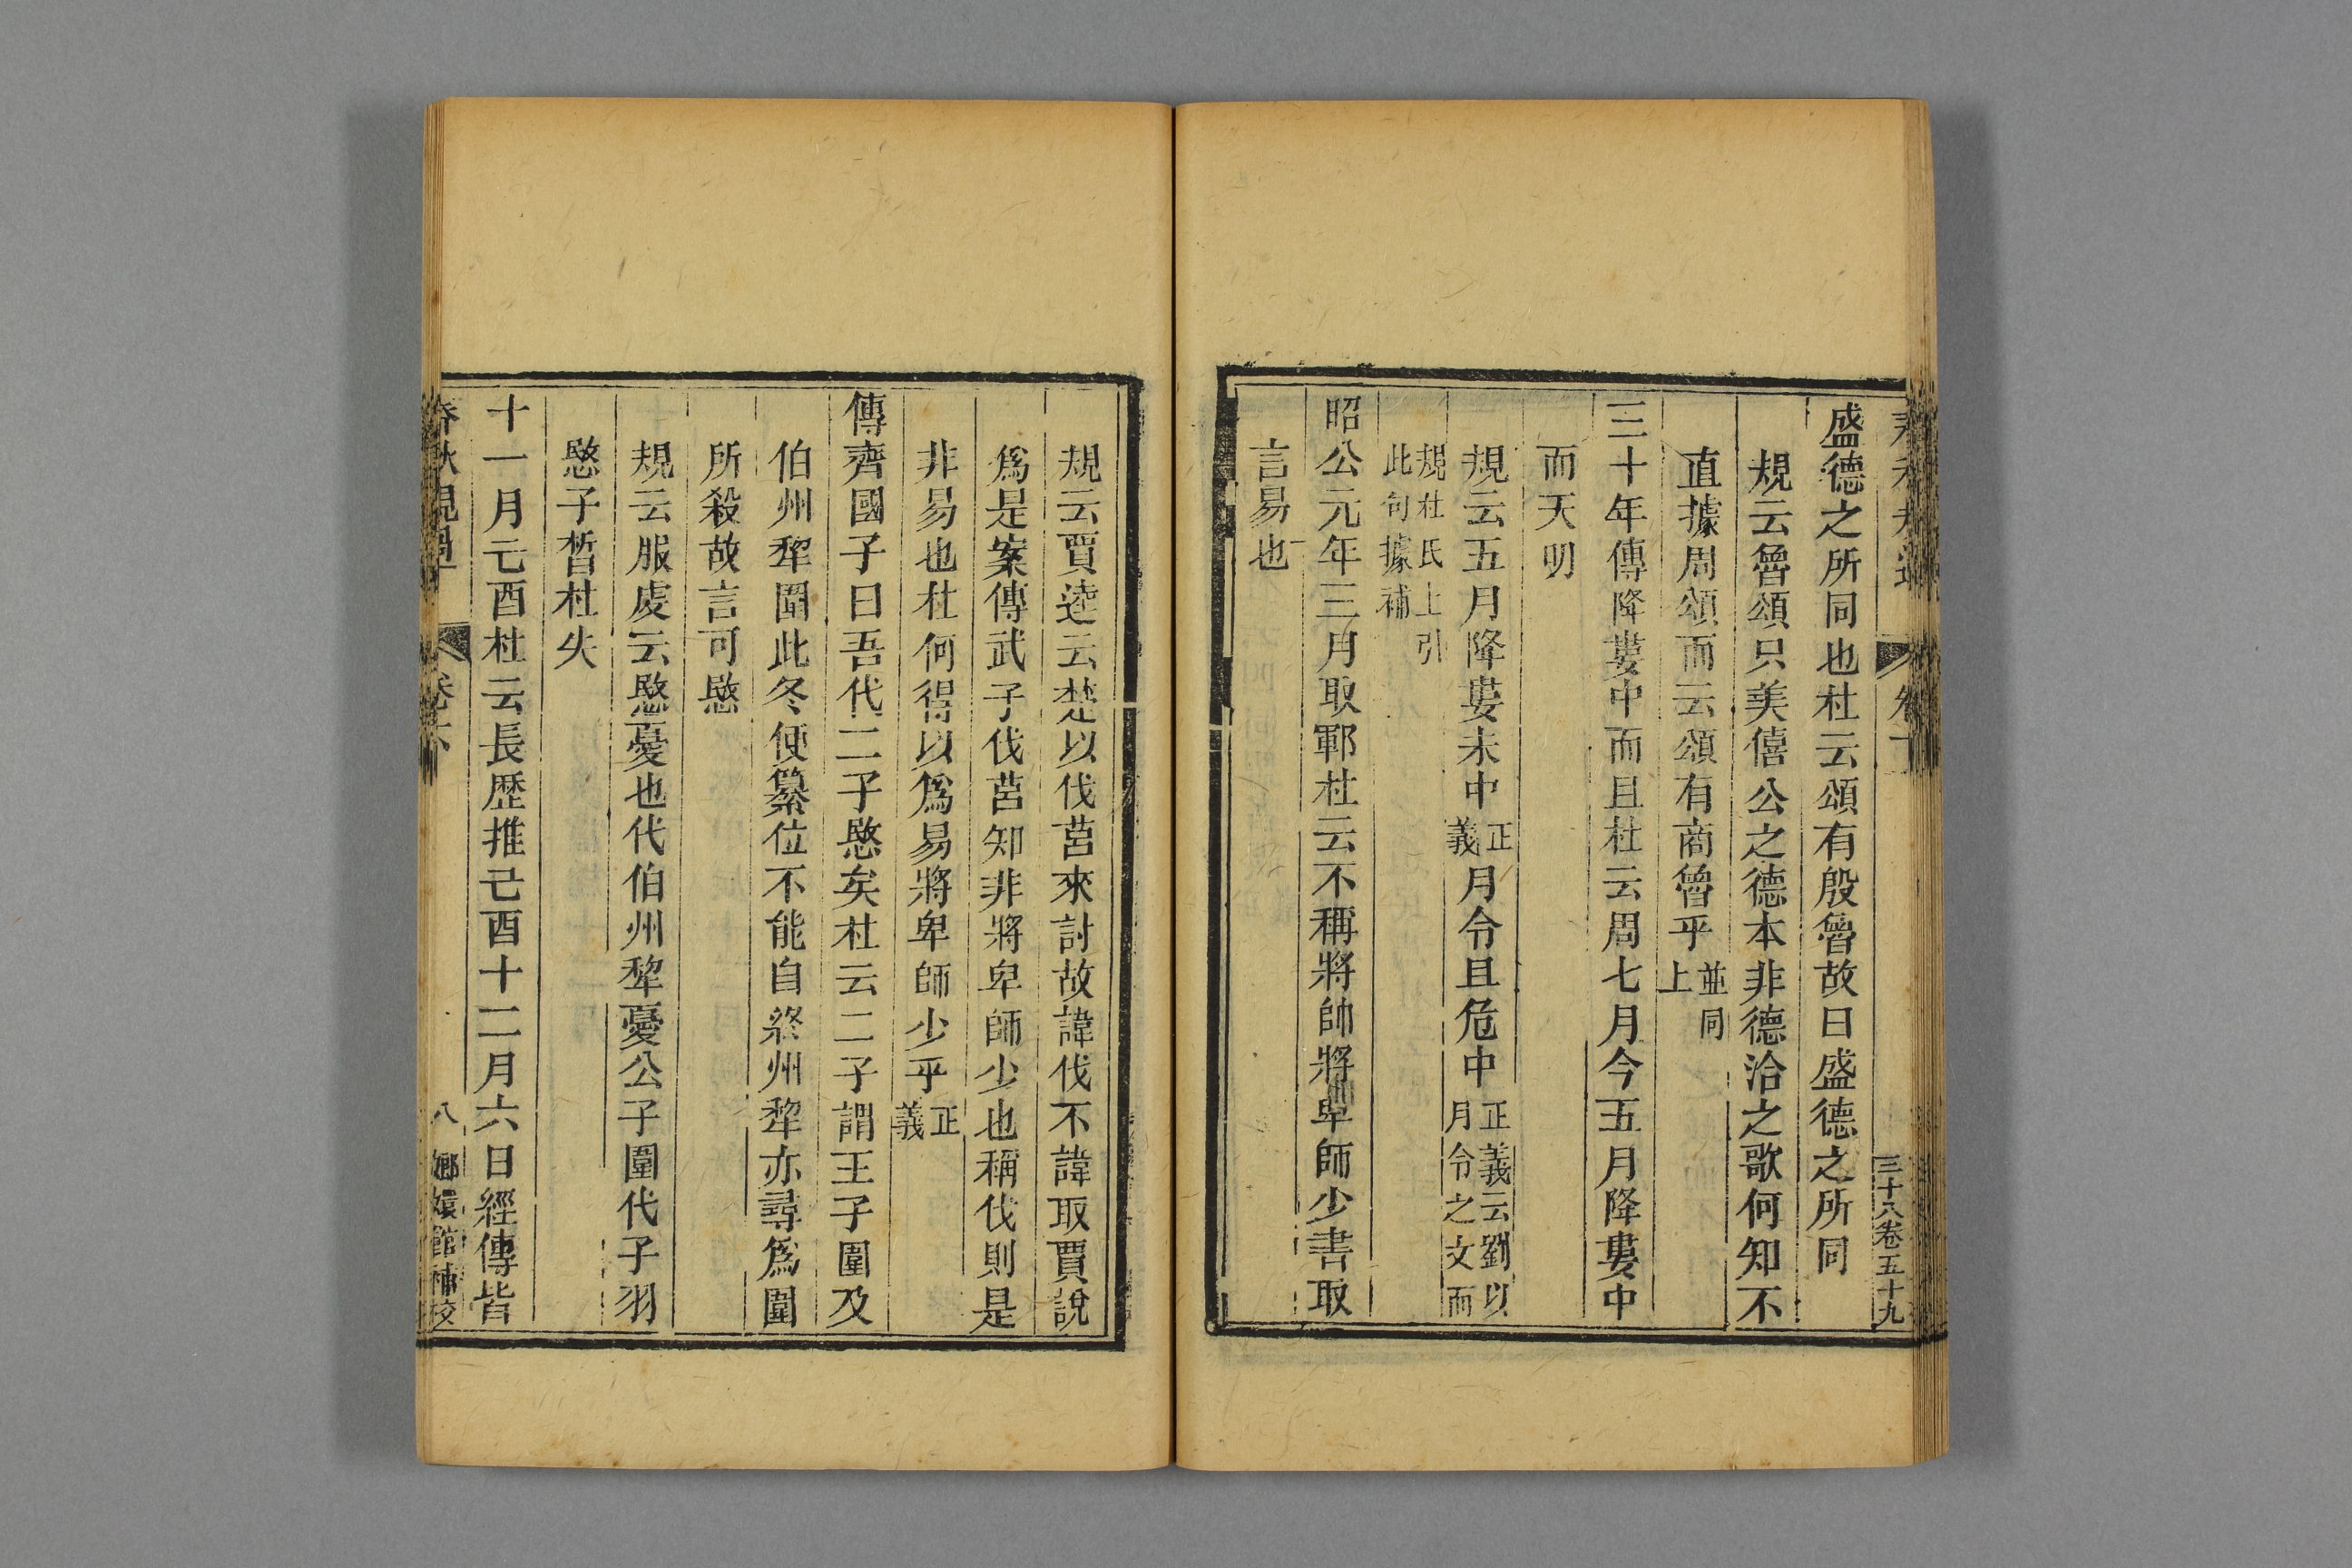 三十八卷五十九
盛德之所同也杜云頌有殷魯故曰盛德之所同
規云魯頌只美僖公之德本非德洽之歌何知不
直據周頌而云頌有商魯乎並同上
三十年傳降婁中而且杜云周七月今五月降婁中
而天明
規云五月降婁未中正義月令且危中正義云劉以月令之文而
規杜氏上引此句據補
昭公元年三月取鄆杜云不稱將帥將卑師少書取
言易也
規云賈逵云楚以伐莒來討故諱伐不諱取賈說
爲是案傳武子伐莒知非將卑師少也稱伐則是
非易也杜何得以爲易將卑師少乎正義
傳齊國子曰吾代二子愍矣杜云二子謂王子圍及
伯州犂圍此冬便篡位不能自終州犂亦尋爲圍
所殺故言可愍
規云服虔云愍憂也代伯州犂憂公子圍代子羽
愍子晳杜失
十一月己酉杜云長歷推己酉十二月六日經傳皆
春秋規過 卷六 八 嫏嬛館補校